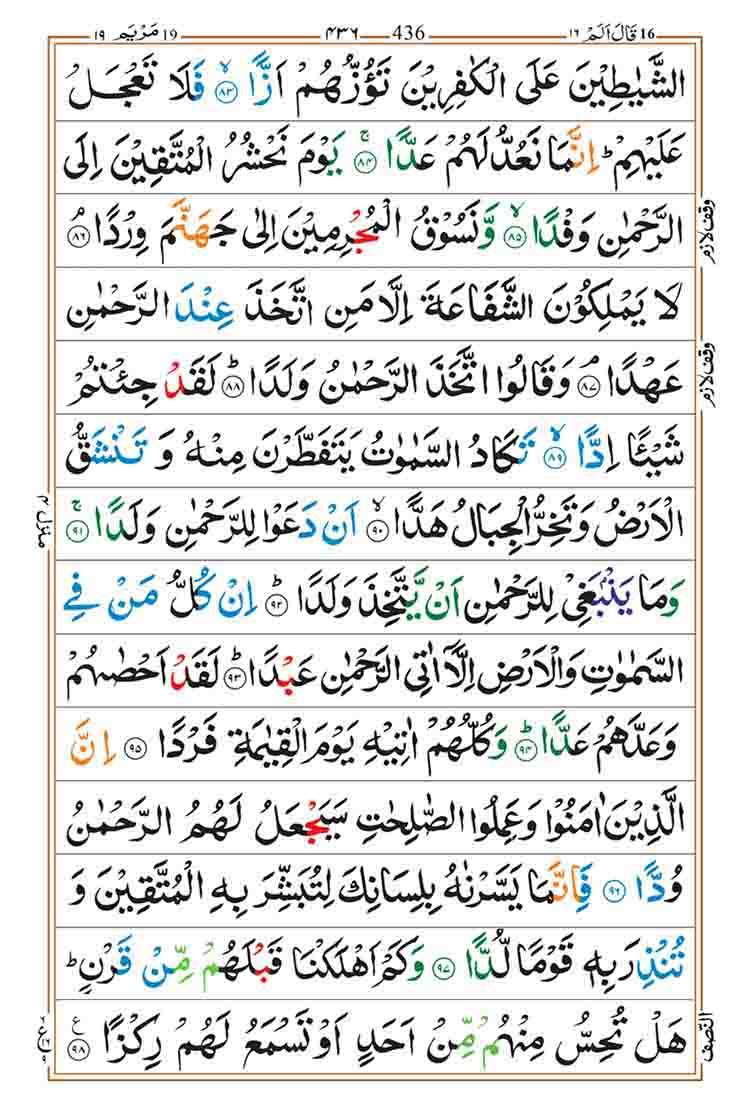 ١٦ قَالَ اَلَمْ 16 436 ٤٣٦ مَرْيَم 19 ١٩
الشَّيٰطِيْنَ عَلَى الْكٰفِرِيْنَ تَؤُزُّهُمْ اَزًّا ۙ﴿۸۳﴾ فَلَا تَعْجَلْ
عَلَيْهِمْ ؕ اِنَّمَا نَعُدُّ لَهُمْ عَدًّا ۚ﴿۸۴﴾ يَوْمَ نَحْشُرُ الْمُتَّقِيْنَ اِلَى
الرَّحْمٰنِ وَفْدًا ۙ﴿۸۵﴾ وَّنَسُوْقُ الْمُجْرِمِيْنَ اِلٰى جَهَنَّمَ وِرْدًا ۘ﴿۸۶﴾
وقف لازم
لَا يَمْلِكُوْنَ الشَّفَاعَةَ اِلَّا مَنِ اتَّخَذَ عِنْدَ الرَّحْمٰنِ
عَهْدًا ۘ﴿۸۷﴾ وَقَالُوا اتَّخَذَ الرَّحْمٰنُ وَلَدًا ؕ﴿۸۸﴾ لَقَدْ جِئْتُمْ
وقف لازم
شَيْـًٔا اِدًّا ۙ﴿۸۹﴾ تَكَادُ السَّمٰوٰتُ يَتَفَطَّرْنَ مِنْهُ وَ تَنْشَقُّ
الْاَرْضُ وَتَخِرُّ الْجِبَالُ هَدًّا ۙ﴿۹۰﴾ اَنْ دَعَوْا لِلرَّحْمٰنِ وَلَدًا ۚ﴿۹۱﴾
منزل ۴
وَمَا يَنْۢبَغِىْ لِلرَّحْمٰنِ اَنْ يَّتَّخِذَ وَلَدًا ؕ﴿۹۲﴾ اِنْ كُلُّ مَنْ فِى
السَّمٰوٰتِ وَالْاَرْضِ اِلَّاۤ اٰتِى الرَّحْمٰنِ عَبْدًا ؕ﴿۹۳﴾ لَقَدْ اَحْصٰىهُمْ
وَعَدَّهُمْ عَدًّا ؕ﴿۹۴﴾ وَكُلُّهُمْ اٰتِيْهِ يَوْمَ الْقِيٰمَةِ فَرْدًا ﴿۹۵﴾ اِنَّ
الَّذِيْنَ اٰمَنُوْا وَعَمِلُوا الصّٰلِحٰتِ سَيَجْعَلُ لَهُمُ الرَّحْمٰنُ
وُدًّا ﴿۹۶﴾ فَاِنَّمَا يَسَّرْنٰهُ بِلِسَانِكَ لِتُبَشِّرَ بِهِ الْمُتَّقِيْنَ وَ
تُنْذِرَ بِهٖ قَوْمًا لُّدًّا ﴿۹۷﴾ وَكَمْ اَهْلَكْنَا قَبْلَهُمْ مِّنْ قَرْنٍ ؕ
هَلْ تُحِسُّ مِنْهُمْ مِّنْ اَحَدٍ اَوْ تَسْمَعُ لَهُمْ رِكْزًا ﴿۹۸﴾ ع
النّصف